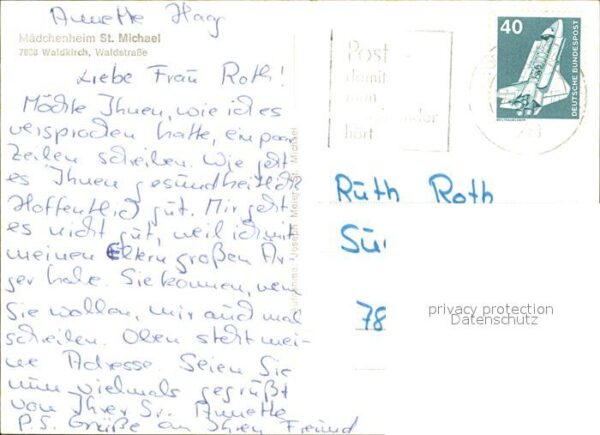 Annette Hag
Mädchenheim St. Michael
7808 Waldkirch, Waldstraße
Liebe Frau Roth!
Möchte Ihnen, wie ich es
versprochen hatte, ein paar
Zeilen schreiben. Wie geht
es Ihnen gesundheitlich
Hoffentlich gut. Mir geht
es nicht gut, weil ich mit
meinen Eltern großen Är
ger habe. Sie können, wenn
Sie wollen, mir auch mal
schreiben. Oben steht mei-
ne Adresse. Seien Sie
nun vielmals gegrüßt
von Ihrer Sr. Annette
P.S. Grüße an Ihren Freund
Post -
damit
man
hört
40
DEUTSCHE BUNDESPOST
Ruth Roth
Sü
78
privacy protection
Datenschutz
Joseph
St. Michael